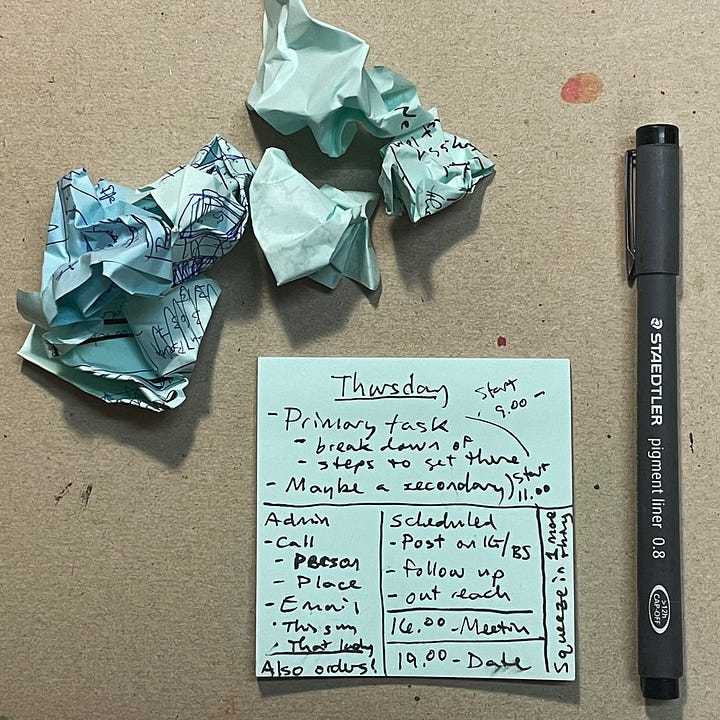 Thursday
start
9.00 -
- Primary task
- break down of
- steps to get there
- Maybe a secondary)
start
11.00
Admin
- Call
- Person
- Place
- Email
· This guy
· That lady
Also orders!
Scheduled
- Post on IG/BS
- follow up
- out reach
16.00 - Meeting
19.00 - Date
Squeeze in 1 more thing
STAEDTLER
pigment liner 0.8
>12h
CAP-OFF